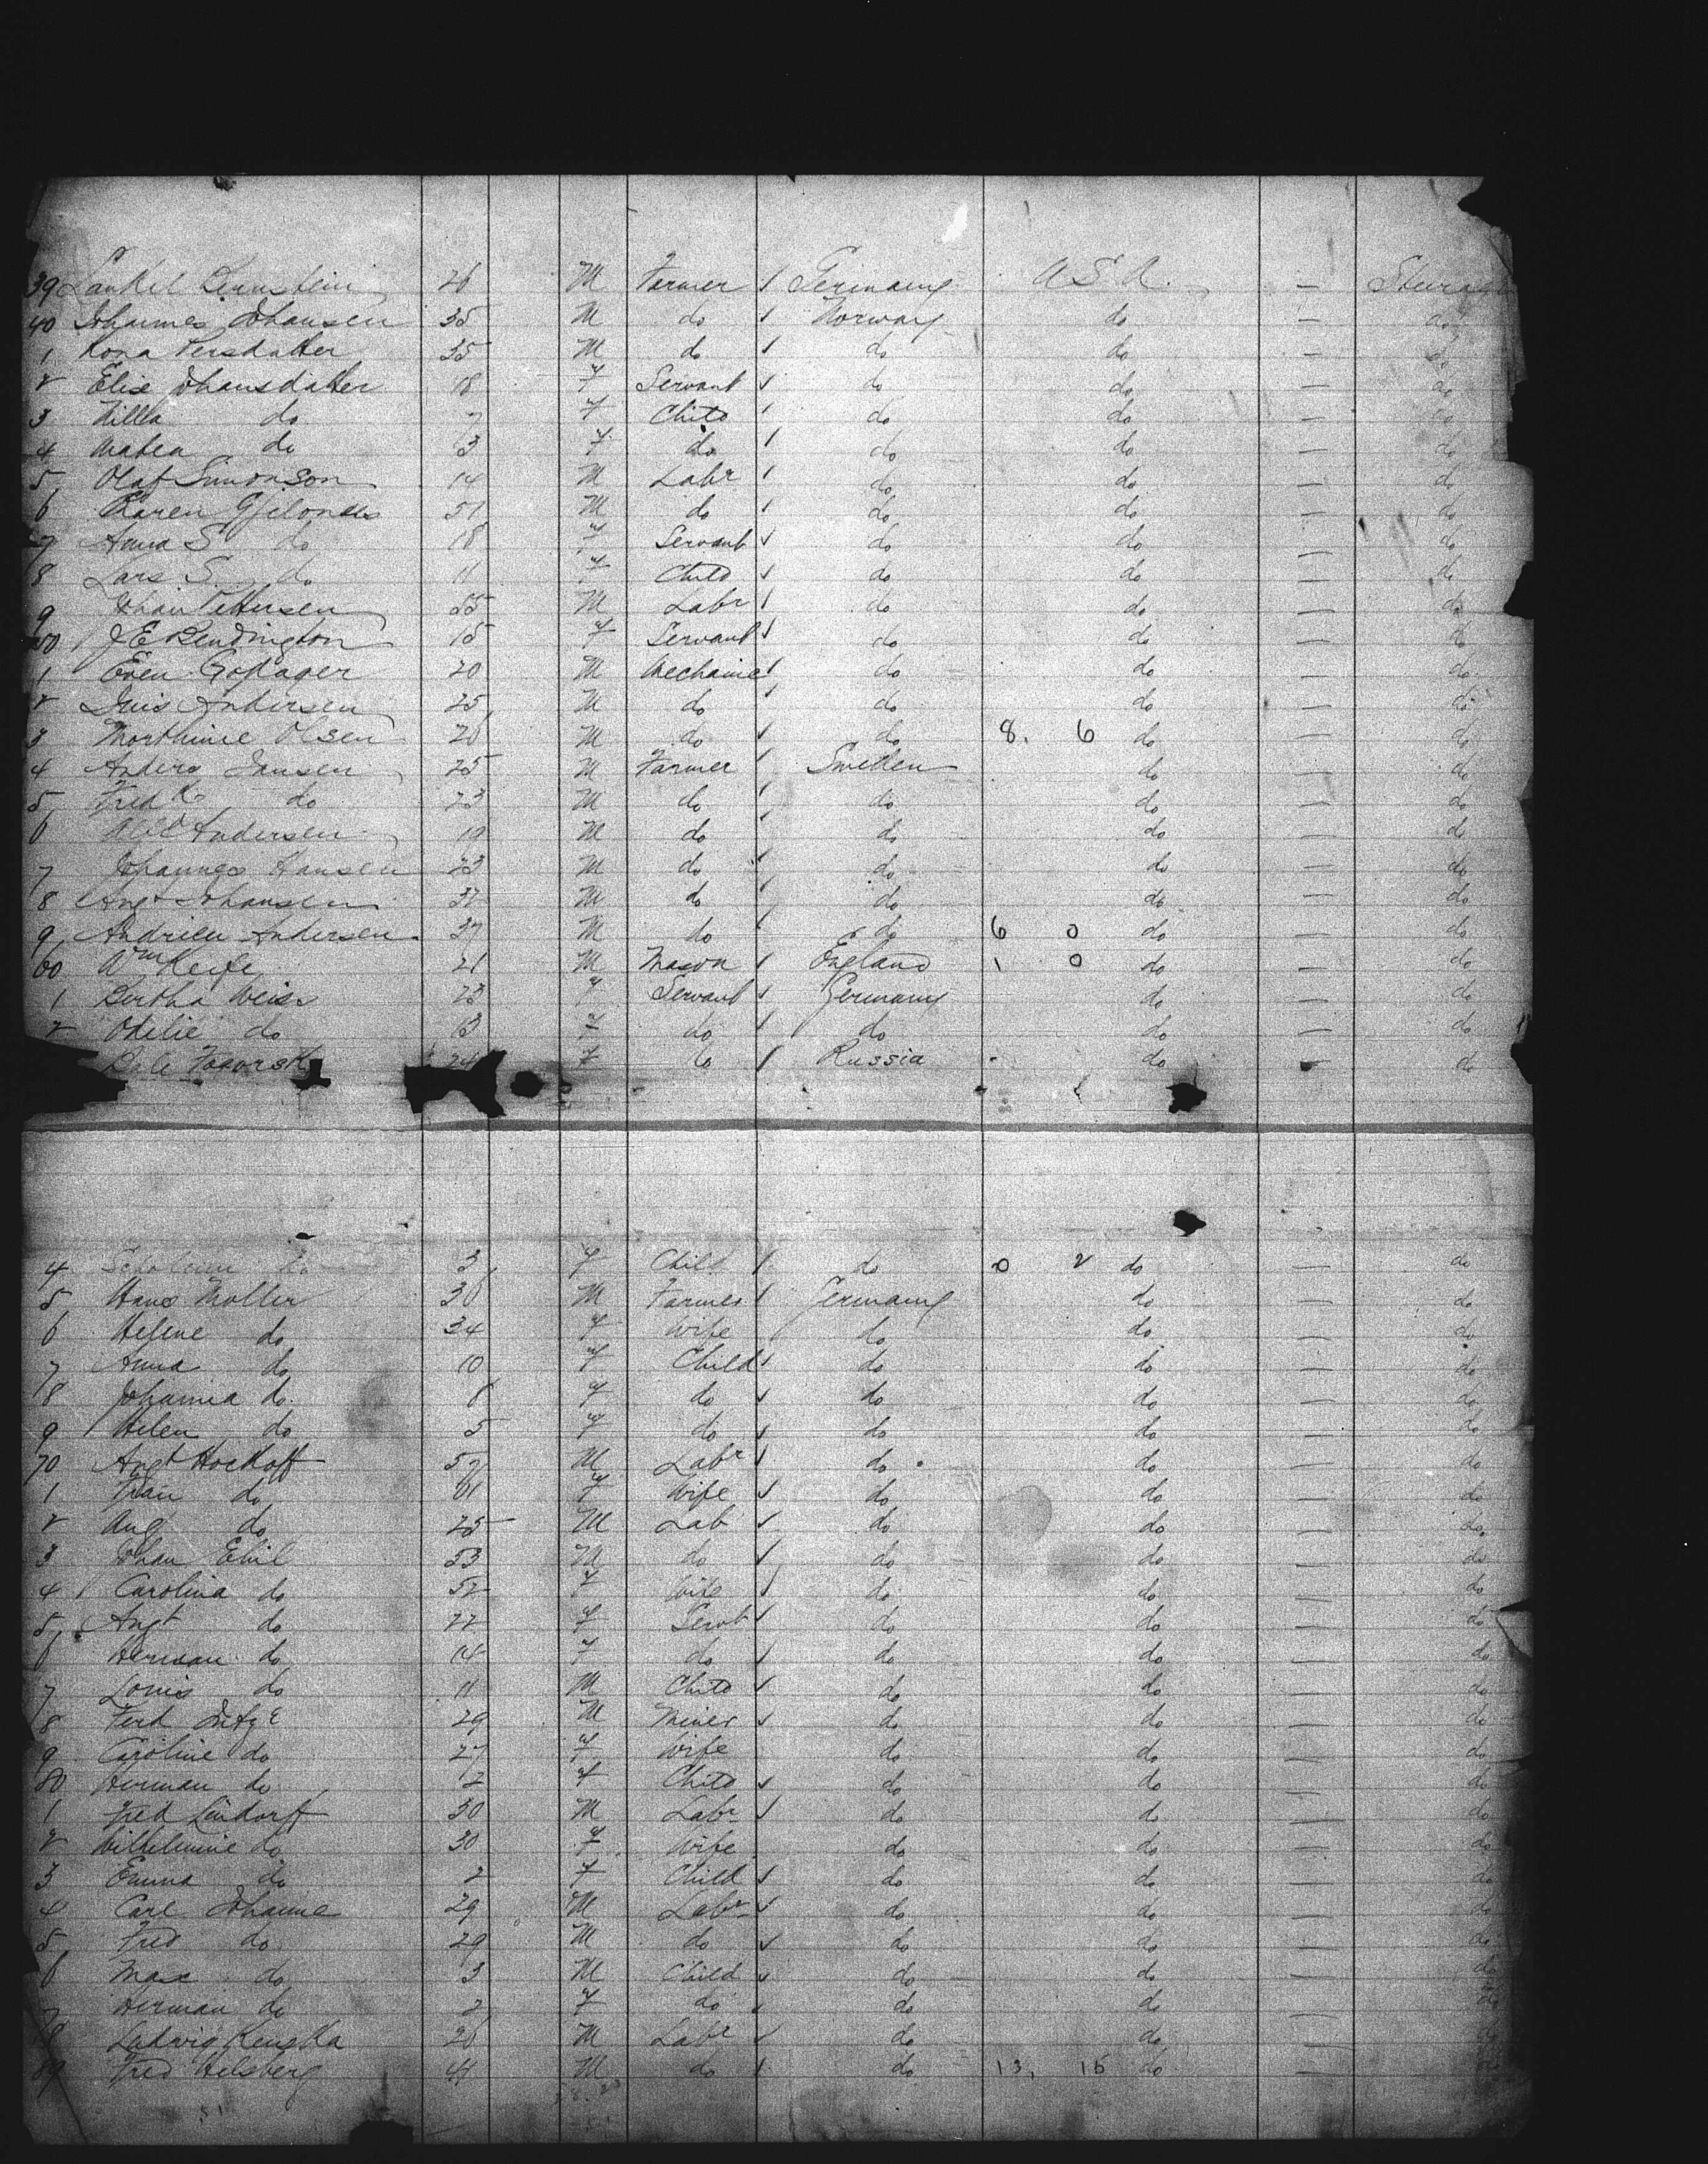 39 Lankel Bernstein 26 M Farmer / Germany U S A. — Steerage
40 Johannes Johansen 35 M do / Norway do — do
1 Kona Persdatter 35 M do / do do — do
2 Elise Johansdatter 18 F Servant / do do — do
3 Nilla do 7 F Child / do do — do
4 Maben do 3 F do / do do — do
5 Olaf Simonson 14 M Labr / do do — do
6 Karen 51 M do / do do — do
7 Anna S do 18 F Servant / do do — do
8 Lars S. do 11 F Child / do do — do
9 Johan Pettersen 55 M Labr / do do — do
50 J E Bendington 15 F Servant / do do — do
1 Even 20 M Mechanic / do do — do
2 Andersen 25 M do / do do — do
3 Morthinie Olsen 26 M do / do 8. 6 do — do
4 Anders Jansen 25 M Farmer / Sweden do — do
5 Fredk do 23 M do / do do — do
6 Andersen 19 M do / do do — do
7 Johannes Hansen 23 M do / do do — do
8 Augt Johansen 32 M do / do do — do
9 Andrieu Andersen 37 M do / do 6 0 do — do
60 Wm Keife 21 M Mason / England 1 0 do — do
1 Bertha Weiss 23 F Servant / Germany do — do
2 Otilie do 13 F do / do do — do
24 F do / Russia do — do
4 do 3 F Child / do 0 2 do — do
5 Hans Moller 36 M Farmer / Germany do — do
6 Helene do 34 F Wife do do — do
7 Anna do 10 F Child / do do — do
8 Johanna do 8 F do / do do — do
9 Helen do 5 F do / do do — do
70 Augt Hockoff 57 M Labr / do do — do
1 Frau do 61 F Wife / do do — do
2 Aug do 25 M Lab / do do — do
3 Johan Ehil 53 M do / do do — do
4 Carolina do 52 F Wife / do do — do
5 Augt do 22 F Servt / do do — do
6 Herman do 14 F do / do do — do
7 Louis do 11 M Child / do do — do
8 Ferd 29 M Miner / do do — do
9 Caroline do 27 F Wife do do — do
80 Herman do 2 F Child / do do — do
1 Fred Lindorff 30 M Labr / do do — do
2 Wilhelmine do 30 F Wife do do — do
3 Emma do 2 F Child / do do — do
4 Carl Johanne 29 M Labr / do do — do
5 Fred do 29 M do / do do — do
6 Max do 3 M Child / do do — do
7 Herman do 2 F do / do do — do
8 Ludwig Kenska 26 M Labr / do do — do
89 Fred Helsberg 41 M do / do 13, 15 do — do